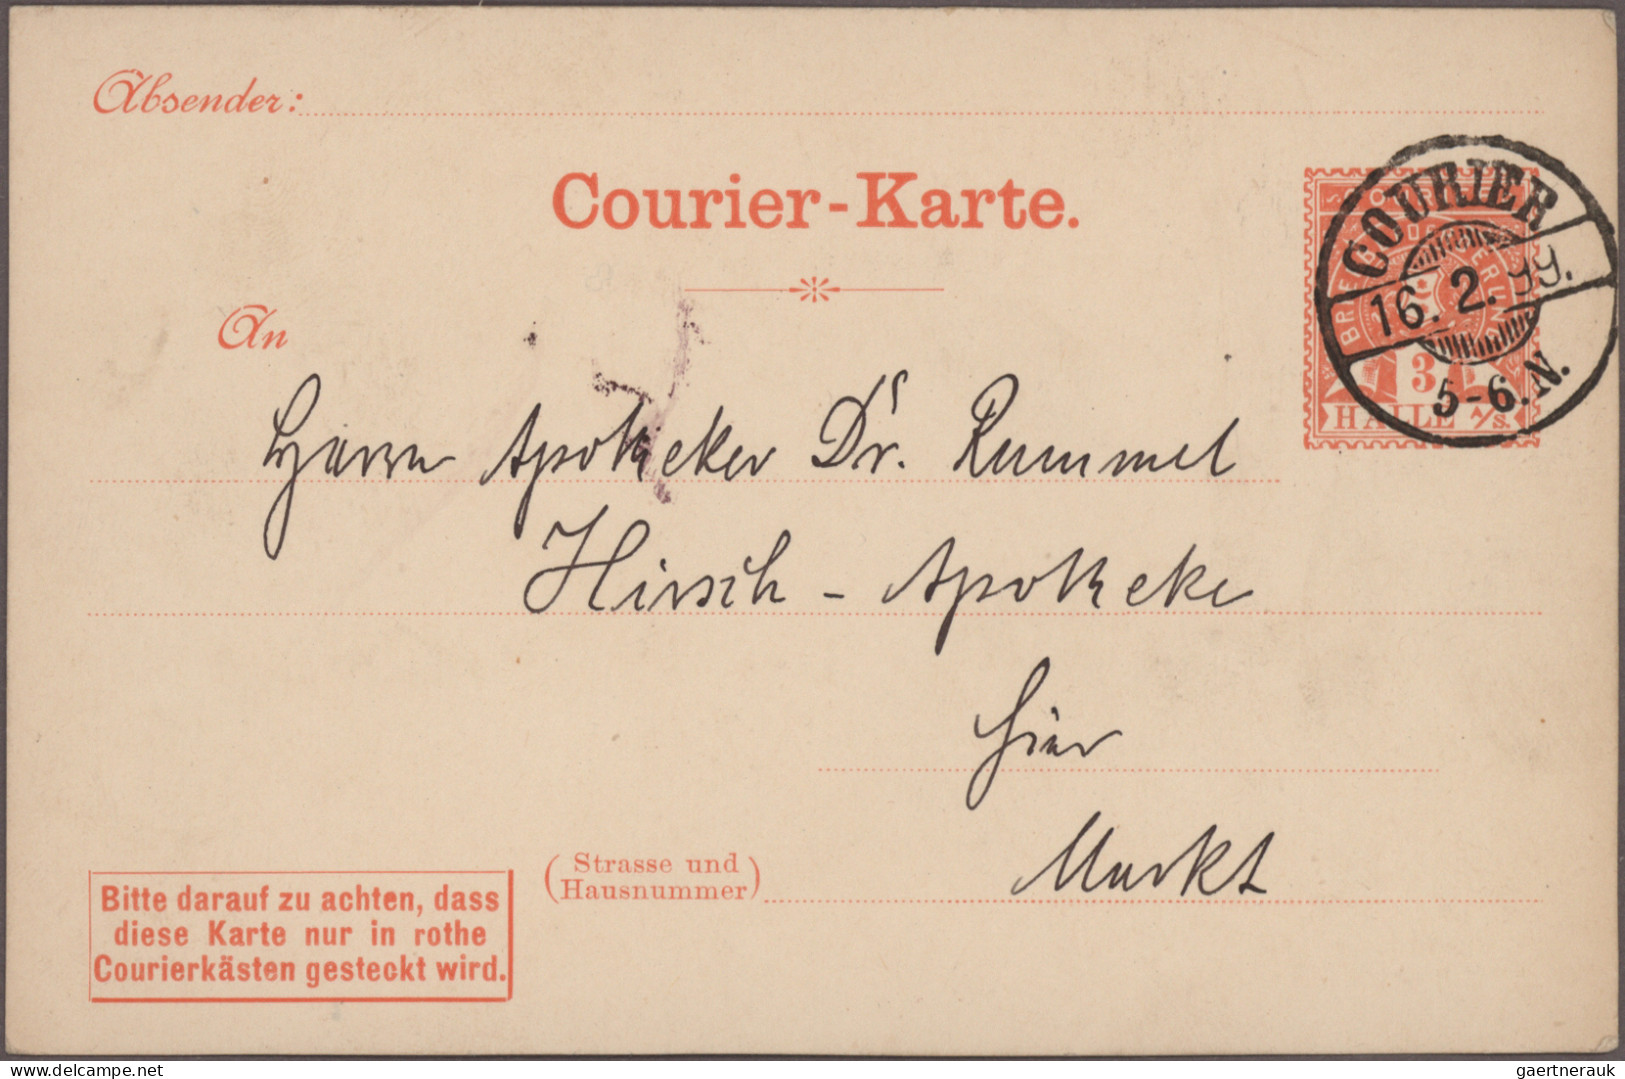 Absender:
Courier-Karte.
COURIER
16. 2. 99.
5-6. N.
3
HALLE A/S.
An
Herrn Apotheker Dr. Rummel
Hirsch - Apotheke
hier
Markt
(Strasse und
Hausnummer)
Bitte darauf zu achten, dass
diese Karte nur in rothe
Courierkästen gesteckt wird.
delcampe.net
gaertnerauk